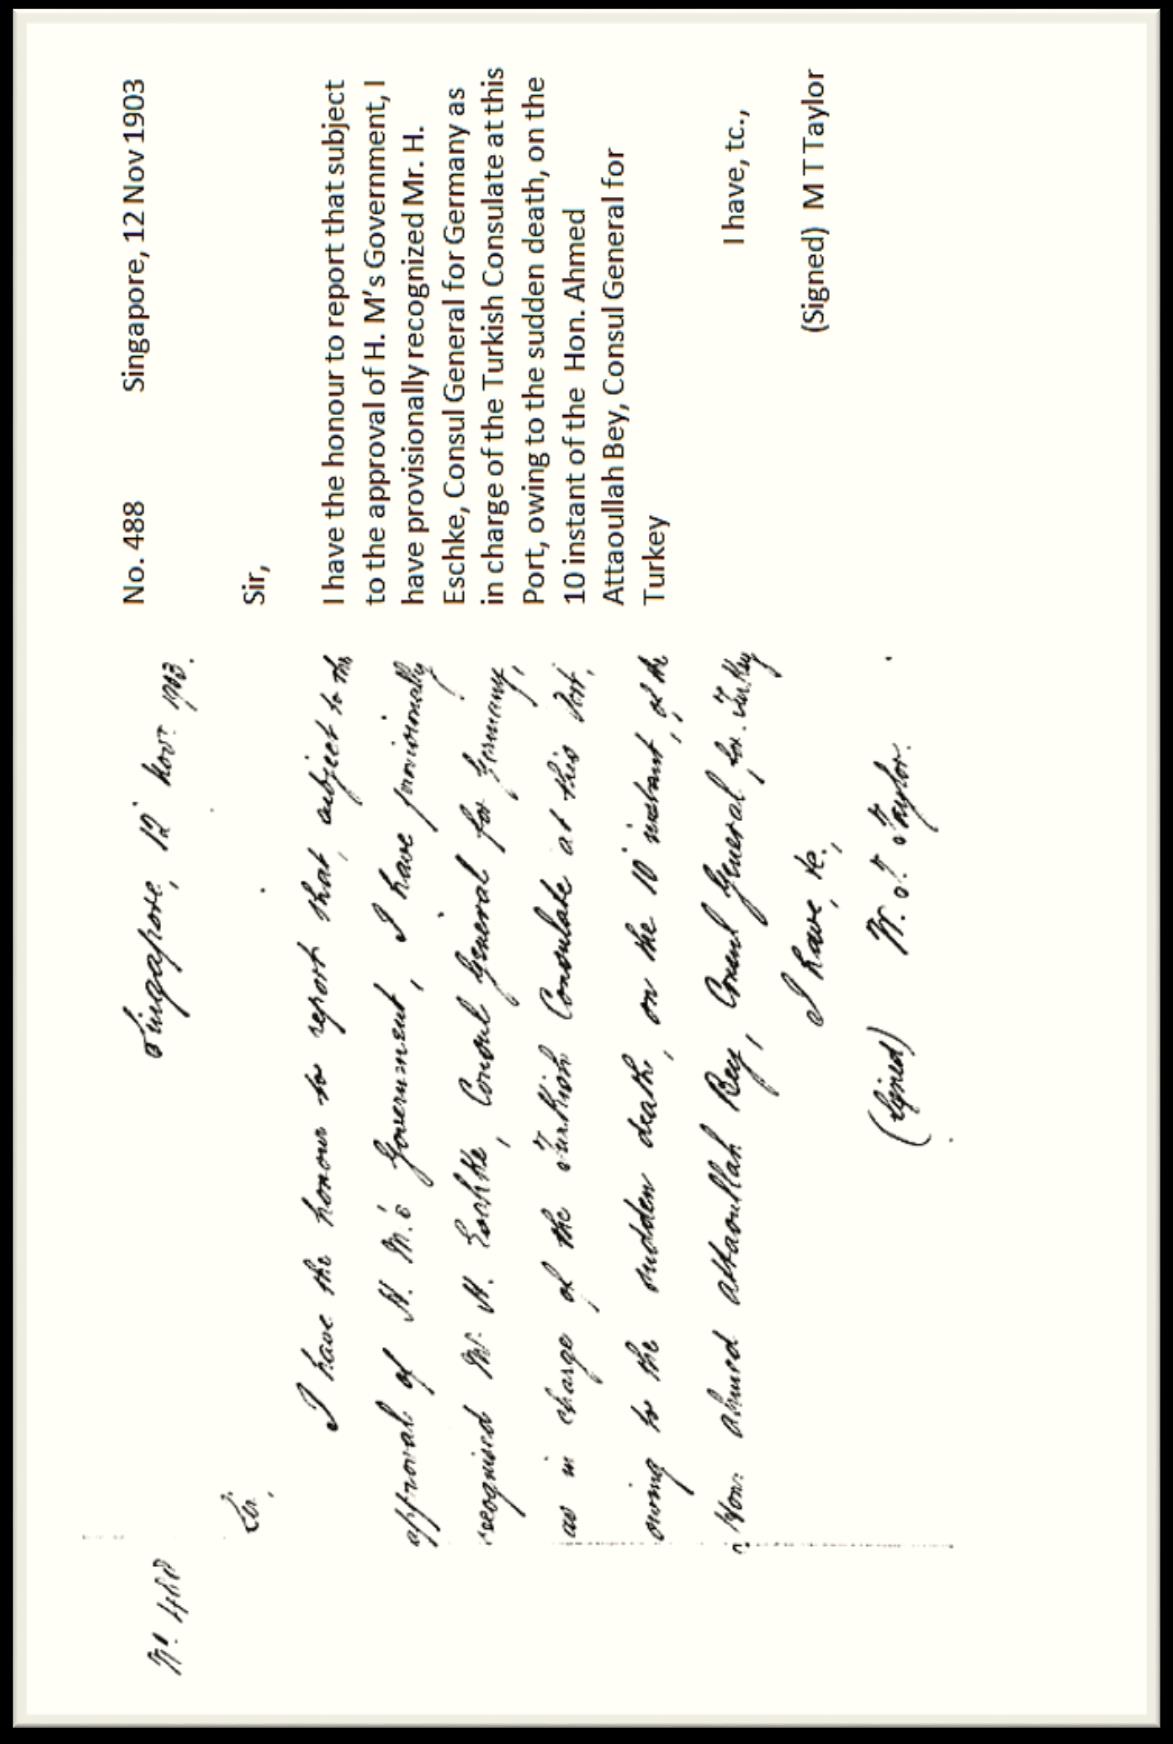 No. 488 Singapore, 12 Nov: 1903.
Sir,
I have the honour to report that, subject to the
approval of H. M.'s Government, I have provisionally
recognised Mr. H. Eschke, Consul General for Germany,
as in charge of the Turkish Consulate at this Port,
owing to the sudden death, on the 10 instant, of the
Hon: Ahmed Attaoullah Bey, Consul General for Turkey
I have, &c.,
(Signed) W. T. Taylor.
No. 488 Singapore, 12 Nov 1903
Sir,
I have the honour to report that subject
to the approval of H. M's Government, I
have provisionally recognized Mr. H.
Eschke, Consul General for Germany as
in charge of the Turkish Consulate at this
Port, owing to the sudden death, on the
10 instant of the Hon. Ahmed
Attaoullah Bey, Consul General for
Turkey
I have, tc.,
(Signed) M T Taylor